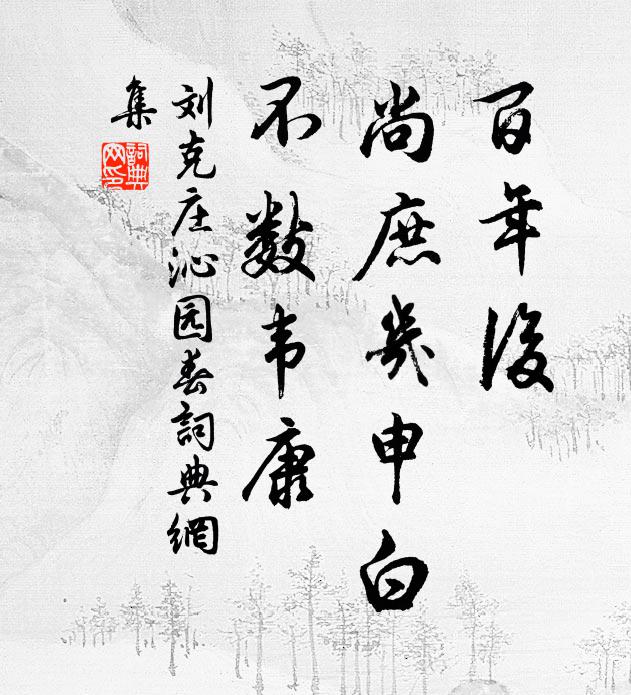 百年後
尚庶幾申白
不数韦康
刘克庄沁园春詞典網
集
詞典
网印